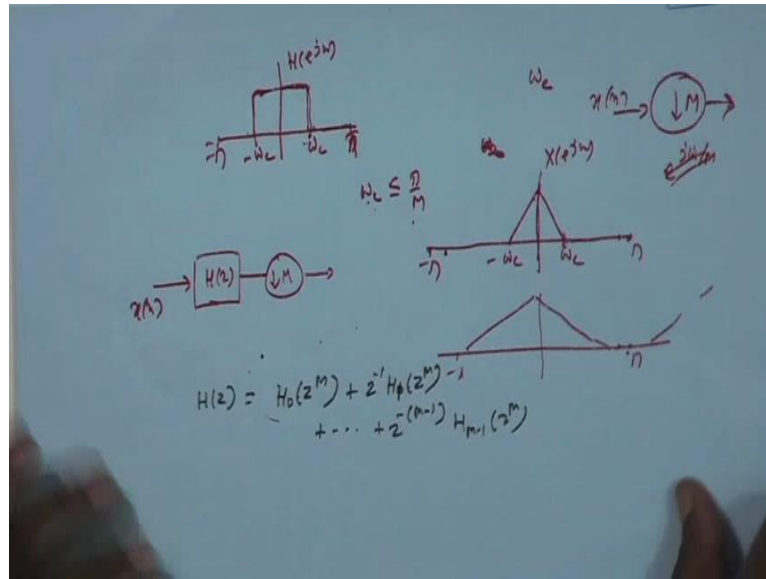 H(e^jω)
-π -ω_c ω_c π
ω_c
x(n) ↓M
e^jω/M
X(e^jω)
ω_c ≤ π/M
-π -ω_c ω_c π
x(n) H(z) ↓M
-π π
H(z) = H_0(z^M) + z^-1 H_1(z^M)
+ ... + z^-(M-1) H_M-1(z^M)